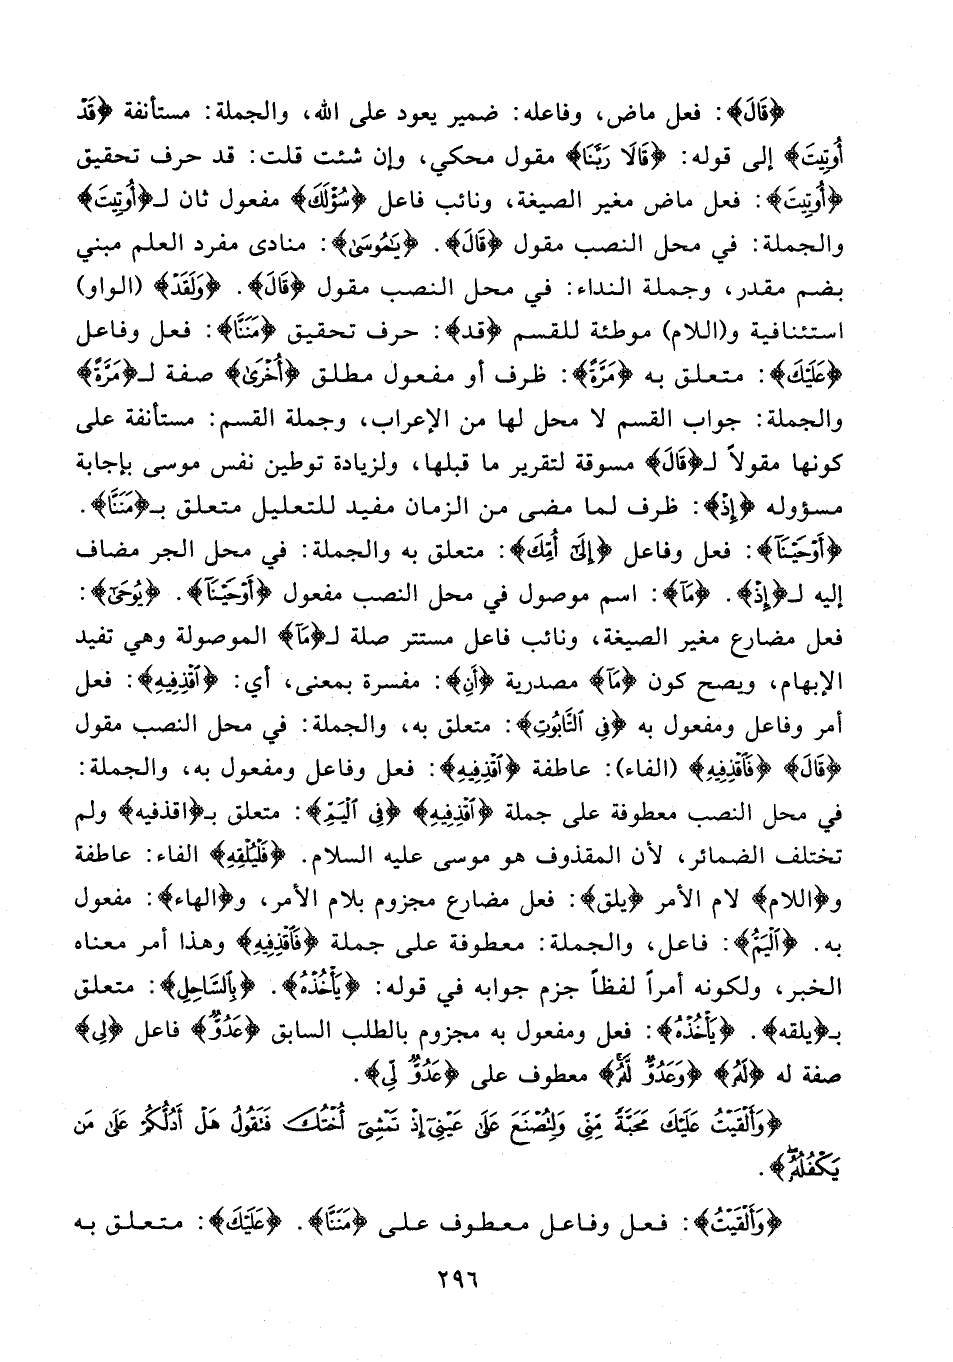 ﴿قَالَ﴾: فعل ماض، وفاعله: ضمير يعود على الله، والجملة: مستأنفة ﴿قَدْ
أُوتِيتَ﴾ إلى قوله: ﴿قَالَا رَبَّنَا﴾ مقول محكي، وإن شئت قلت: قد حرف تحقيق
﴿أُوتِيتَ﴾: فعل ماض مغير الصيغة، ونائب فاعل ﴿سُؤْلَكَ﴾ مفعول ثان لـ﴿أُوتِيتَ﴾
والجملة: في محل النصب مقول ﴿قَالَ﴾. ﴿يَٰمُوسَىٰ﴾: منادى مفرد العلم مبني
بضم مقدر، وجملة النداء: في محل النصب مقول ﴿قَالَ﴾. ﴿وَلَقَدْ﴾ (الواو)
استئنافية و(اللام) موطئة للقسم ﴿قد﴾: حرف تحقيق ﴿مَنَنَّا﴾: فعل وفاعل
﴿عَلَيْكَ﴾: متعلق به ﴿مَرَّةً﴾: ظرف أو مفعول مطلق ﴿أُخْرَىٰ﴾ صفة لـ﴿مَرَّةً﴾
والجملة: جواب القسم لا محل لها من الإعراب، وجملة القسم: مستأنفة على
كونها مقولاً لـ﴿قَالَ﴾ مسوقة لتقرير ما قبلها، ولزيادة توطين نفس موسى بإجابة
مسؤوله ﴿إِذْ﴾: ظرف لما مضى من الزمان مفيد للتعليل متعلق بـ﴿مَنَنَّا﴾.
﴿أَوْحَيْنَآ﴾: فعل وفاعل ﴿إِلَىٰٓ أُمِّكَ﴾: متعلق به والجملة: في محل الجر مضاف
إليه لـ﴿إِذْ﴾. ﴿مَآ﴾: اسم موصول في محل النصب مفعول ﴿أَوْحَيْنَآ﴾. ﴿يُوحَىٰٓ﴾:
فعل مضارع مغير الصيغة، ونائب فاعل مستتر صلة لـ﴿مَآ﴾ الموصولة وهي تفيد
الإبهام، ويصح كون ﴿مَآ﴾ مصدرية ﴿أَنِ﴾: مفسرة بمعنى، أي: ﴿ٱقْذِفِيهِ﴾: فعل
أمر وفاعل ومفعول به ﴿فِى ٱلتَّابُوتِ﴾: متعلق به، والجملة: في محل النصب مقول
﴿قَالَ﴾ ﴿فَٱقْذِفِيهِ﴾ (الفاء): عاطفة ﴿ٱقْذِفِيهِ﴾: فعل وفاعل ومفعول به، والجملة:
في محل النصب معطوفة على جملة ﴿ٱقْذِفِيهِ﴾ ﴿فِى ٱلْيَمِّ﴾: متعلق بـ﴿اقذفيه﴾ ولم
تختلف الضمائر، لأن المقذوف هو موسى عليه السلام. ﴿فَلْيُلْقِهِ﴾ الفاء: عاطفة
و﴿اللام﴾ لام الأمر ﴿يلق﴾: فعل مضارع مجزوم بلام الأمر، و﴿الهاء﴾: مفعول
به. ﴿ٱلْيَمُّ﴾: فاعل، والجملة: معطوفة على جملة ﴿فَٱقْذِفِيهِ﴾ وهذا أمر معناه
الخبر، ولكونه أمراً لفظاً جزم جوابه في قوله: ﴿يَأْخُذْهُ﴾. ﴿بِٱلسَّاحِلِ﴾: متعلق
بـ﴿يلقه﴾. ﴿يَأْخُذْهُ﴾: فعل ومفعول به مجزوم بالطلب السابق ﴿عَدُوٌّ﴾ فاعل ﴿لِى﴾
صفة له ﴿لَهُۥ﴾ ﴿وَعَدُوٌّ لَّهُۥ﴾ معطوف على ﴿عَدُوٌّ لِّى﴾.
﴿وَأَلْقَيْتُ عَلَيْكَ مَحَبَّةً مِّنِّى وَلِتُصْنَعَ عَلَىٰ عَيْنِىٓ إِذْ تَمْشِىٓ أُخْتُكَ فَتَقُولُ هَلْ أَدُلُّكُمْ عَلَىٰ مَن
يَكْفُلُهُۥ﴾.
﴿وَأَلْقَيْتُ﴾: فعل وفاعل معطوف على ﴿مَنَنَّا﴾. ﴿عَلَيْكَ﴾: متعلق به
٢٩٦